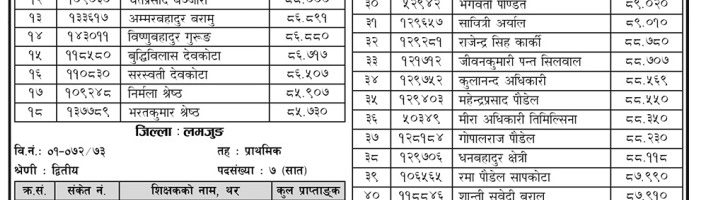 १३ १३३६१७ अम्मरबहादुर बरामु ८६.८९१
१४ १४३०११ विष्णुबहादुर गुरूङ ८६.८८०
१५ ११८५८० बुद्धिविलास देवकोटा ८६.७१७
१६ ११०८३० सरस्वती देवकोटा ८६.५०७
१७ १०९२४८ निर्मला श्रेष्ठ ८५.९०७
१८ १३७७८९ भरतकुमार श्रेष्ठ ८५.७३०
जिल्ला : लमजुङ
वि.नं.: ०१-०७२/७३ तह : प्राथमिक
श्रेणी : द्वितीय पदसंख्या : ७ (सात)
क्र.सं. संकेत नं. शिक्षकको नाम, थर कुल प्राप्ताङ्क
३० ५२९४२ भगवती पण्डित ८९.०२०
३१ १२९६५७ सावित्री अर्याल ८९.०१०
३२ १२९२८१ राजेन्द्र सिंह कार्की ८८.७८०
३३ १२१७१२ जीवनकुमारी पन्त सिलवाल ८८.७०७
३४ १२९७५२ कुलानन्द अधिकारी ८८.५६९
३५ १२९४०३ महेन्द्रप्रसाद पौडेल ८८.५५०
३६ ५०३४९ मीरा अधिकारी तिमिल्सिना ८८.३५०
३७ १२८१८४ गोपालराज पौडेल ८८.२३०
३८ १२९७०६ धनबहादुर क्षेत्री ८८.११८
३९ १०६५६५ रमा पौडेल सापकोटा ८७.९९०
४० ११८८४६ शान्ती सुवेदी बराल ८७.९१०